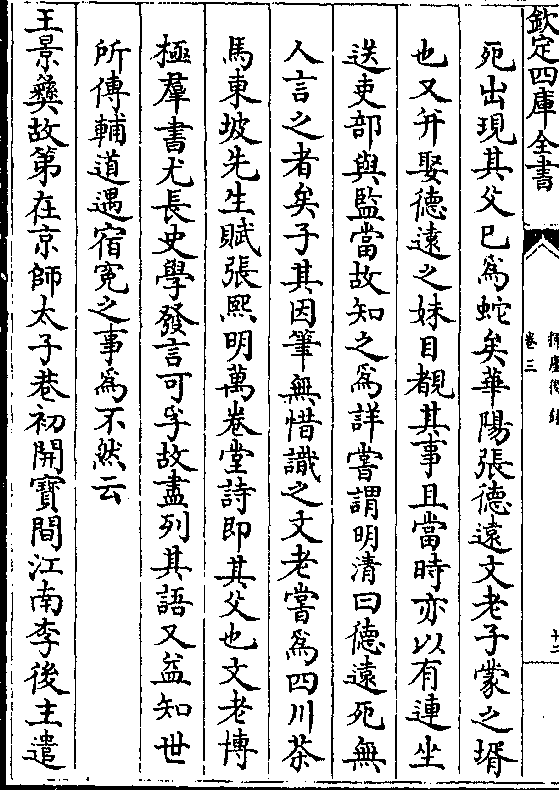 欽定四庫全書
卷三
死出現其父已為蛇矣華陽張德遠文老子蒙之壻
也又弁娶德遠之妹目覩其事且當時亦以有連坐
送吏部與監當故知之為詳嘗謂明清曰德遠死無
人言之者矣子其因筆無惜識之文老嘗為四川茶
馬東坡先生賦張熙明萬卷堂詩即其父也文老博
極羣書尤長史學發言可孚故盡列其語又益知世
所傳輔道遇宿寃之事為不然云
王景彝故第在京師太子巷初開寶間江南李後主遣